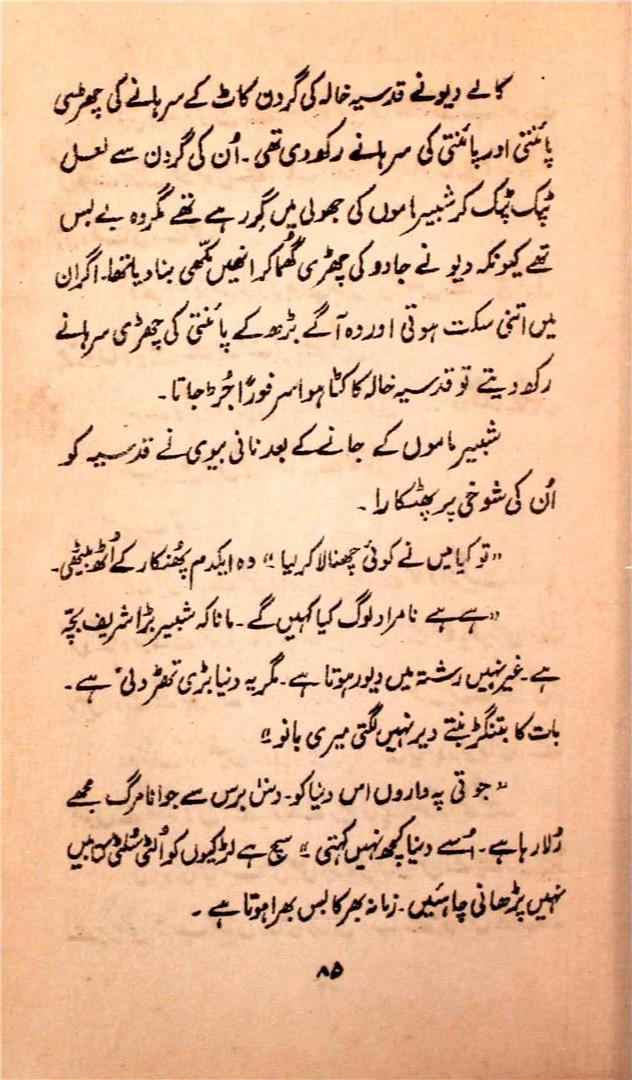 کالے دیو نے قدسیہ خالہ کی گردن کاٹ کے سرہانے کی چھڑی
پائنتی اور پائنتی کی سرہانے رکھ دی تھی۔ اُن کی گردن سے لعل
ٹپک ٹپک کر شبیر ماموں کی جھولی میں گر رہے تھے مگر وہ بے بس
تھے کیونکہ دیو نے جادو کی چھڑی گھُما کر انھیں مکھّی بنا دیا تھا۔ اگر ان
میں اتنی سکت ہوتی اور وہ آگے بڑھ کے پائنتی کی چھڑی سرہانے
رکھ دیتے تو قدسیہ خالہ کا کٹا ہوا سر فوراً جُڑ جاتا۔
شبیر ماموں کے جانے کے بعد نانی بیوی نے قدسیہ کو
اُن کی شوخی پر پھٹکارا۔
”تو کیا میں نے کوئی چھنالا کر لیا“ وہ ایکدم پھُنکار کے اُٹھ بیٹھی۔
”ہے ہے نامراد لوگ کیا کہیں گے۔ مانا کہ شبیر بڑا شریف بچّہ
ہے۔ غیر نہیں رشتہ میں دیور ہوتا ہے۔ مگر یہ دنیا بڑی تھڑدلی ہے۔
بات کا بتنگڑ بنتے دیر نہیں لگتی میری بانو“
”جوتی پہ واروں اس دنیا کو۔ دس برس سے جوانامرگ مجھے
رُلا رہا ہے۔ اُسے دنیا کچھ نہیں کہتی“ سچ ہے لڑکیوں کو اُلٹی سُلٹی کتابیں
نہیں پڑھانی چاہئیں۔ زمانہ بھر کا بس بھرا ہوتا ہے۔
۸۵